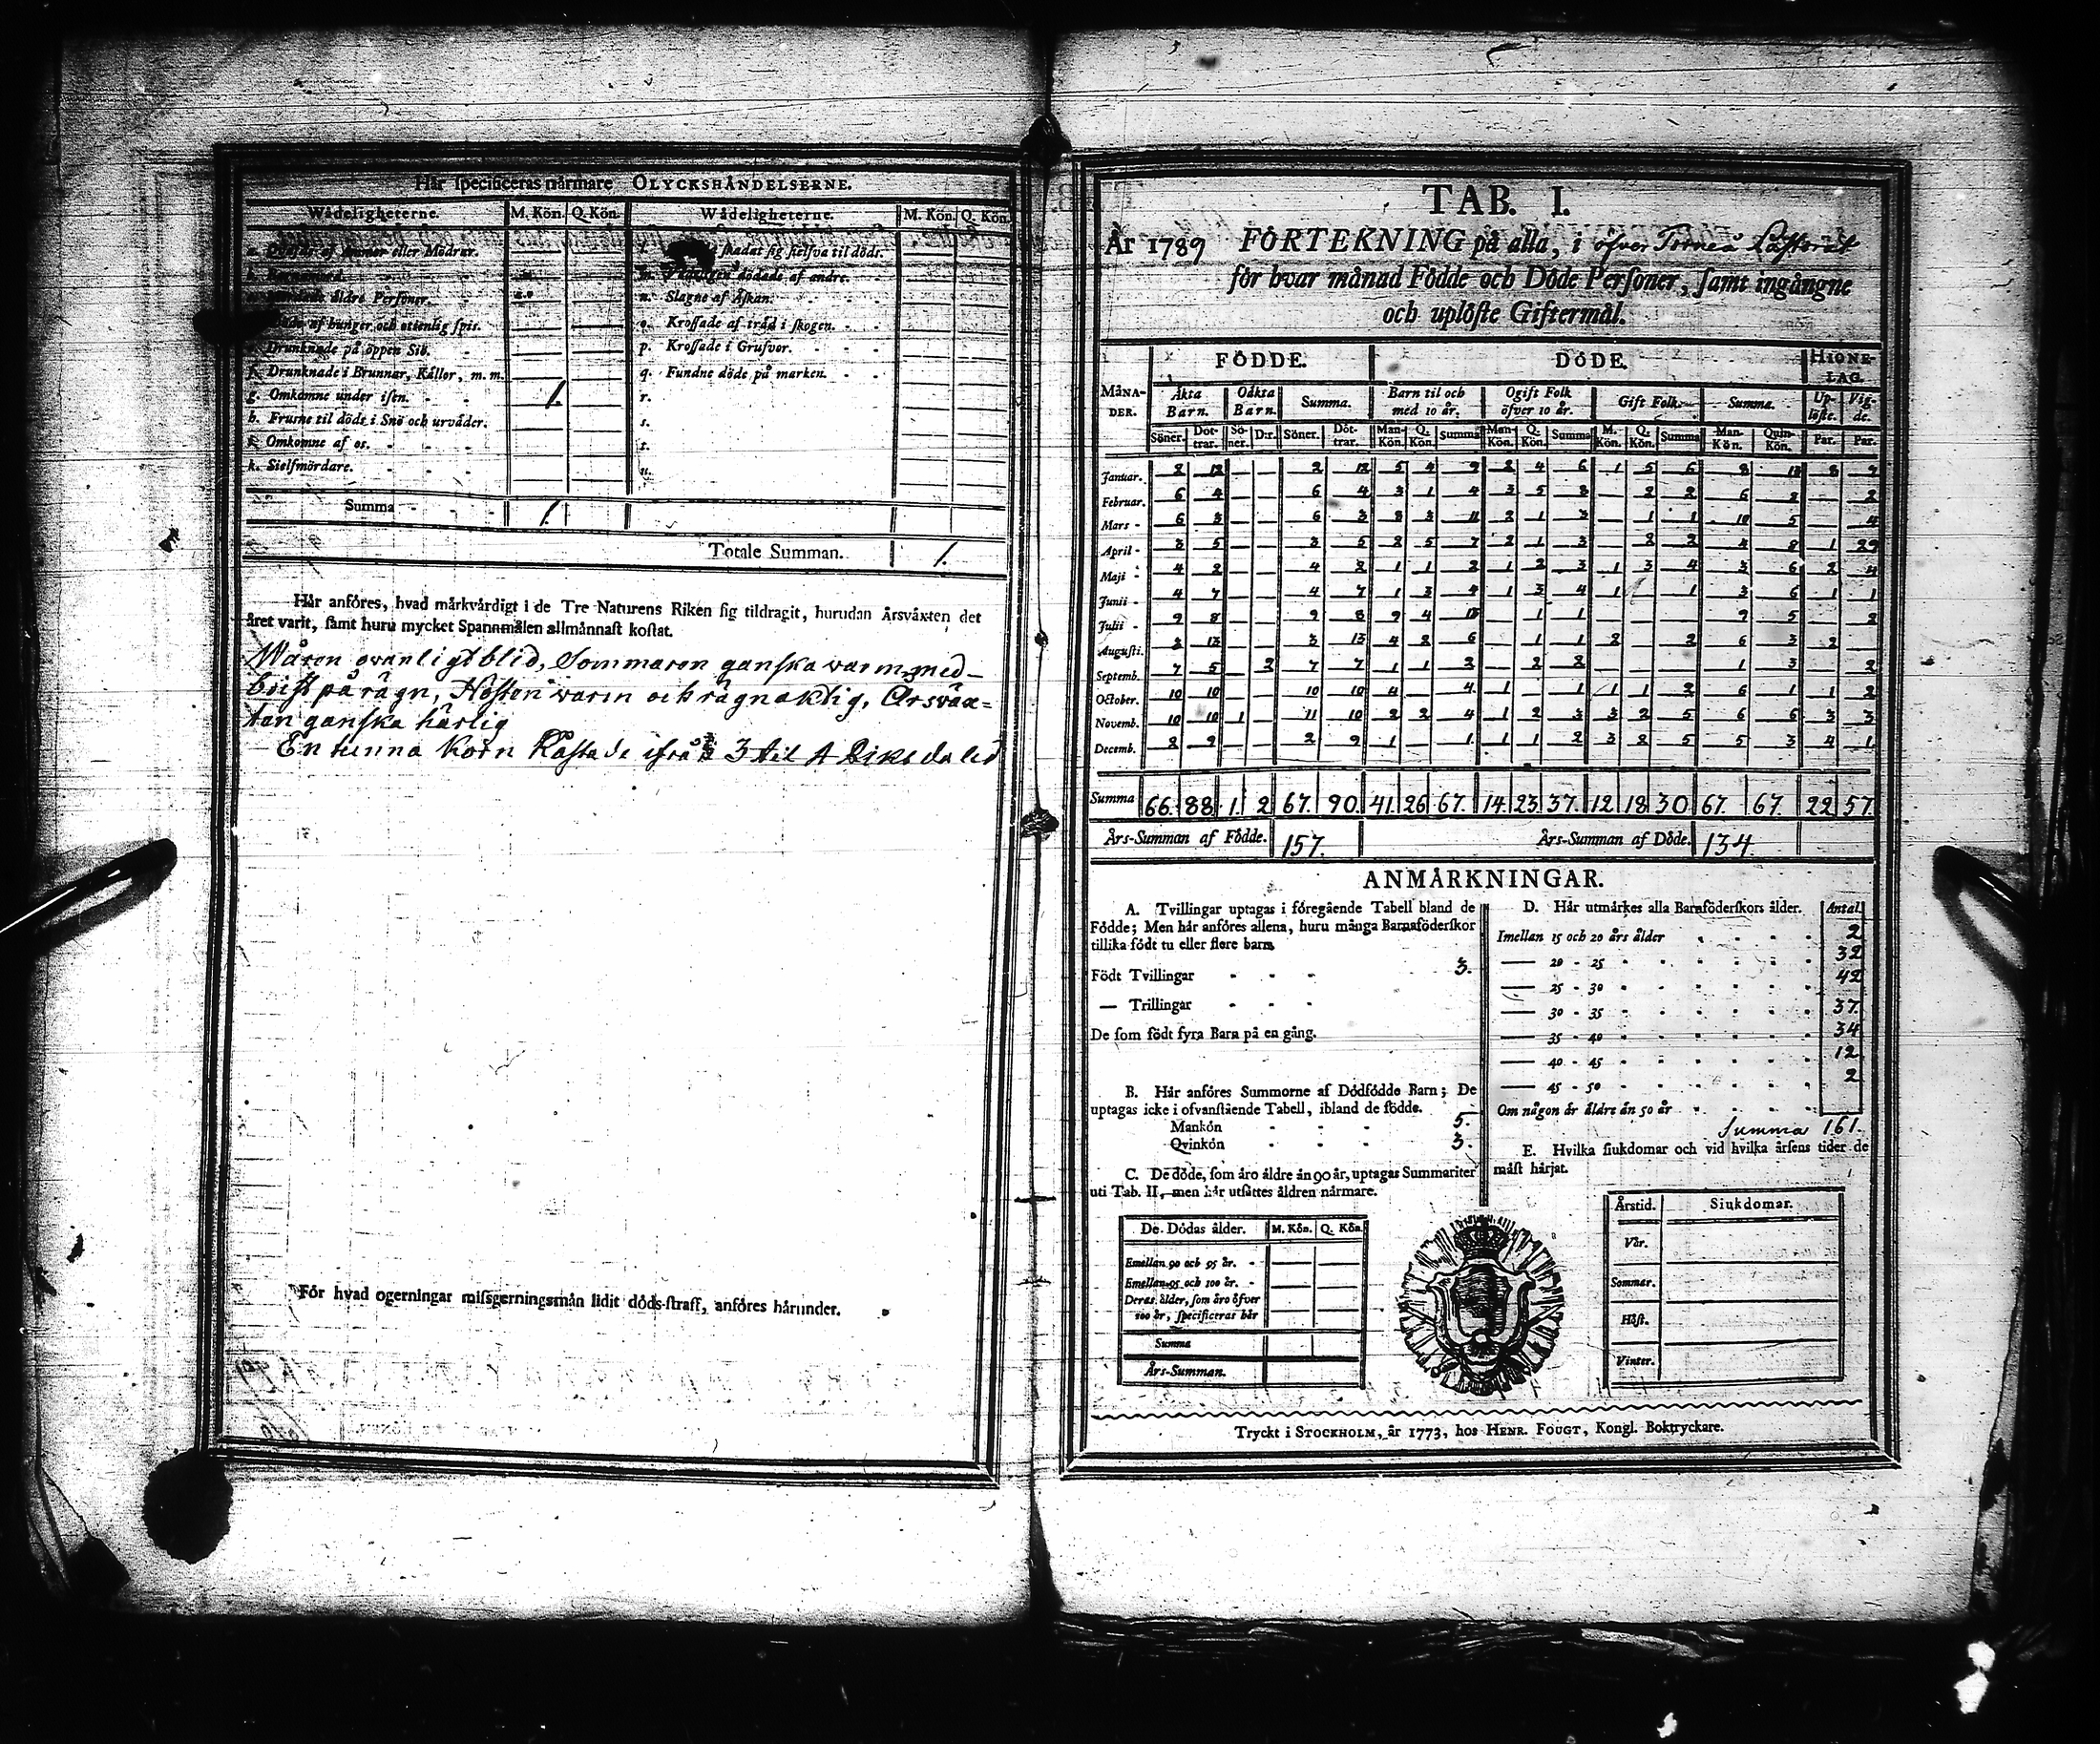 Här specificeras närmare OLYCKSHÄNDELSERNE.
Wådeligheterne. M. Kön. Q. Kön. Wådeligheterne. M. Kön. Q. Kön.
a. Qvafde af Ammor eller Mödrar. skadat sig sielfva til döds.
dödade af andre.
äldre Personer. n. Slagne af Åskan.
af hunger och otienlig spis. o. Krossade af träd i skogen.
Drunknade på öppen Siö. p. Krossade i Grufvor.
f. Drunknade i Brunnar, Källor, m. m. q. Fundne döde på marken.
g. Omkomne under isen. 1. r.
h. Frusne til döds i Snö och urväder. s.
Omkomne af os. t.
k. Sielfmördare. u.
Summa 1.
Totale Summan. 1.
Här anföres, hvad märkvärdigt i de Tre Naturens Riken sig tildragit, hurudan Årsväxten det
året varit, samt huru mycket Spannmålen allmännast kostat.
Wåren ovanligt blid, Sommaren ganska varm med
brist på rägn, Hösten warm och rägnaktig, Årsväx=
ten ganska härlig
En tunna Korn Kåstade ifrå 3 til 4 Riksdaler
För hvad ogerningar missgerningsmän lidit döds-straff, anföres härunder.
TAB. I.
År 1789 FÖRTEKNING på alla, i öfver Torneå Pastorat
för hvar månad Födde och Döde Personer, samt ingångne
och uplöste Giftermål.
FÖDDE. DÖDE. HIONE-LAG.
MÅNA-DER. Äkta Barn. Oäkta Barn. Summa. Barn til och med 10 år. Ogift Folk öfver 10 år. Gift Folk. Summa. Up-löste. Vig-de.
Söner. Döt-trar. Sö-ner. D:r. Söner. Döt-trar. Man-Kön. Q. Kön. Summa Man-Kön. Q. Kön. Summa M. Kön. Q. Kön. Summa Man-Kön. Quin-Kön. Par. Par.
Januar. 2 12 2 12 5 4 9 2 4 6 1 5 6 8 13 8 7
Februar. 6 4 6 4 3 1 4 3 5 8 2 2 6 8 2
Mars 6 3 6 3 8 3 11 2 1 3 1 1 10 5 4
April 3 5 3 5 2 5 7 2 1 3 2 2 4 8 1 29
Maji 4 2 4 2 1 1 2 1 2 3 1 3 4 3 6 2 4
Junii 4 7 4 7 1 3 4 1 3 4 1 1 3 6 1 1
Julii 9 8 9 8 9 4 13 1 1 9 5 2
Augusti. 3 13 3 13 4 2 6 1 1 2 2 6 3 2
Septemb. 7 5 2 7 7 1 1 2 2 2 1 3 2
October. 10 10 10 10 4 4 1 1 1 1 2 6 1 1 2
Novemb. 10 10 1 11 10 2 2 4 1 2 3 3 2 5 6 6 3 3
Decemb. 2 9 2 9 1 1 1 1 2 3 2 5 5 3 4 1
Summa 66. 88. 1 2 67. 90. 41. 26 67. 14. 23 37. 12 18 30 67. 67. 22 57.
Års-Summan af Födde. 157. Års-Summan af Döde. 134.
ANMÄRKNINGAR.
A. Tvillingar uptagas i föregående Tabell bland de
Födde; Men här anföres allena, huru många Barnaföderskor
tillika födt tu eller flere barn.
Födt Tvillingar 3.
— Trillingar
De som födt fyra Barn på en gång.
B. Här anföres Summorne af Dödfödde Barn; De
uptagas icke i ofvanstående Tabell, ibland de födde.
Mankön 5.
Qvinkön 3.
C. De döde, som äro äldre än 90 år, uptagas Summariter
uti Tab. II, men här utsättes åldren närmare.
De Dödas ålder. M. Kön. Q. Kön.
Emellan 90 och 95 år.
Emellan 95 och 100 år.
Deras ålder, som äro öfver
100 år, specificeras här
Summa
Års-Summan.
D. Här utmärkes alla Barnföderskors ålder. Antal
Imellan 15 och 20 års ålder 2
— 20 - 25 32
— 25 - 30 42
— 30 - 35 37.
— 35 - 40 34
— 40 - 45 12
— 45 - 50 2
Om någon är äldre än 50 år
Summa 161.
E. Hvilka siukdomar och vid hvilka årsens tider de
mäst härjat.
Årstid. Siukdomar.
Vår.
Sommar.
Höst.
Vinter.
Tryckt i STOCKHOLM, år 1773, hos HENR. FOUGT, Kongl. Boktryckare.